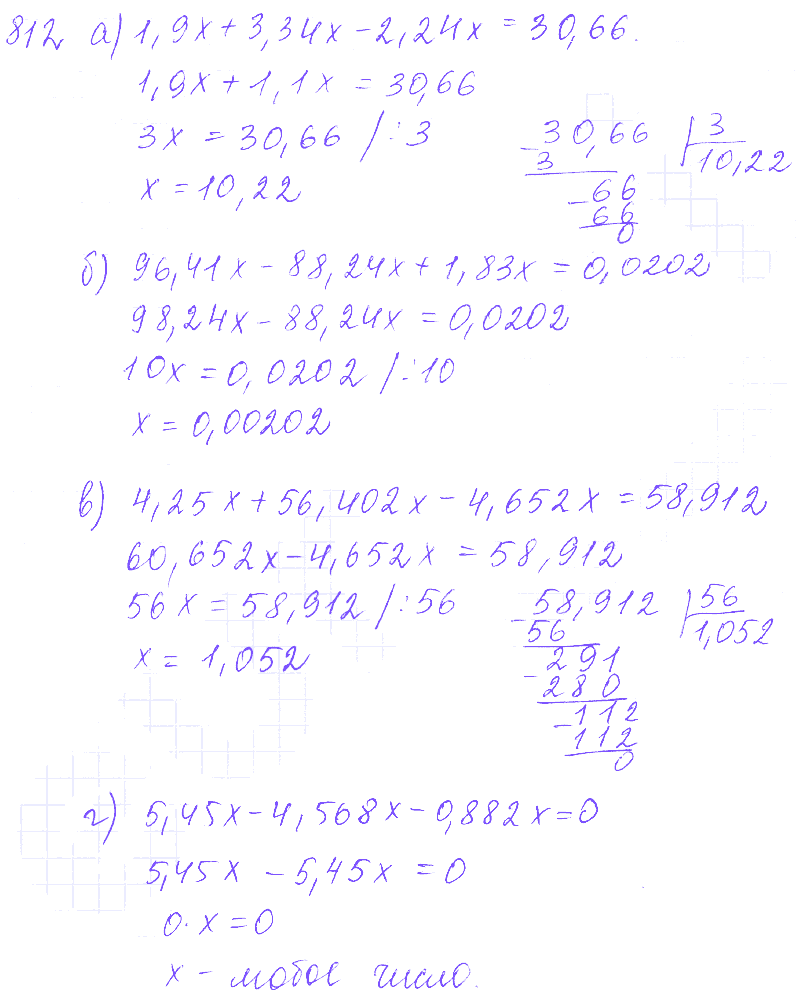 812 а) 1,9x + 3,34x - 2,24x = 30,66.
1,9x + 1,1x = 30,66
3x = 30,66 /:3
x = 10,22
30,66 | 3
10,22
- 3
- 66
66
0
б) 96,41x - 88,24x + 1,83x = 0,0202
98,24x - 88,24x = 0,0202
10x = 0,0202 /:10
x = 0,00202
в) 4,25x + 56,402x - 4,652x = 58,912
60,652x - 4,652x = 58,912
56x = 58,912 /:56
x = 1,052
- 58,912 | 56
56
1,052
- 291
280
- 112
112
0
г) 5,45x - 4,568x - 0,882x = 0
5,45x - 5,45x = 0
0·x = 0
x - любое число.